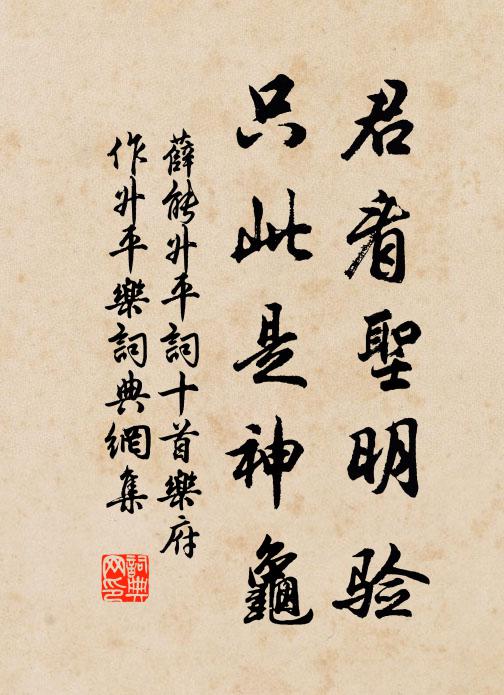 君看聖明验
只此是神龜
薛能升平詞十首樂府
作升平樂詞典網集
詞典網印